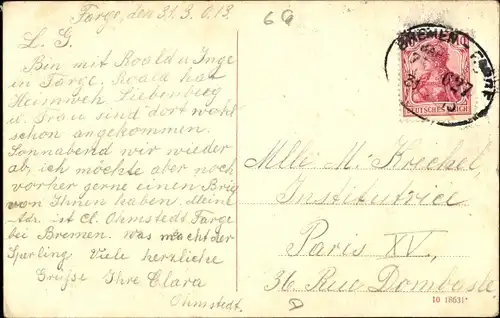 Farge, den 31. 3. 0. 13.
69
L. G.
Bin mit Roald u Inge
in Farge. Roald hat
Heimweh. Liebenberg
u. Frau sind dort wohl
schon angekommen.
Sonnabend wir wieder
ab, ich möchte aber noch
vorher gerne einen Brief
von Ihnen haben. Meine
Adr. ist Cl. Ohmstedt Farge
bei Bremen. Was macht der
Sperling. Viele herzliche
Grüße Ihre Clara
Ohmstedt.
BREMEN
DEUTSCHES REICH
Mlle M. Krechel,
Institutrice
Paris XV,
36 Rue Dombasle
10 18631*